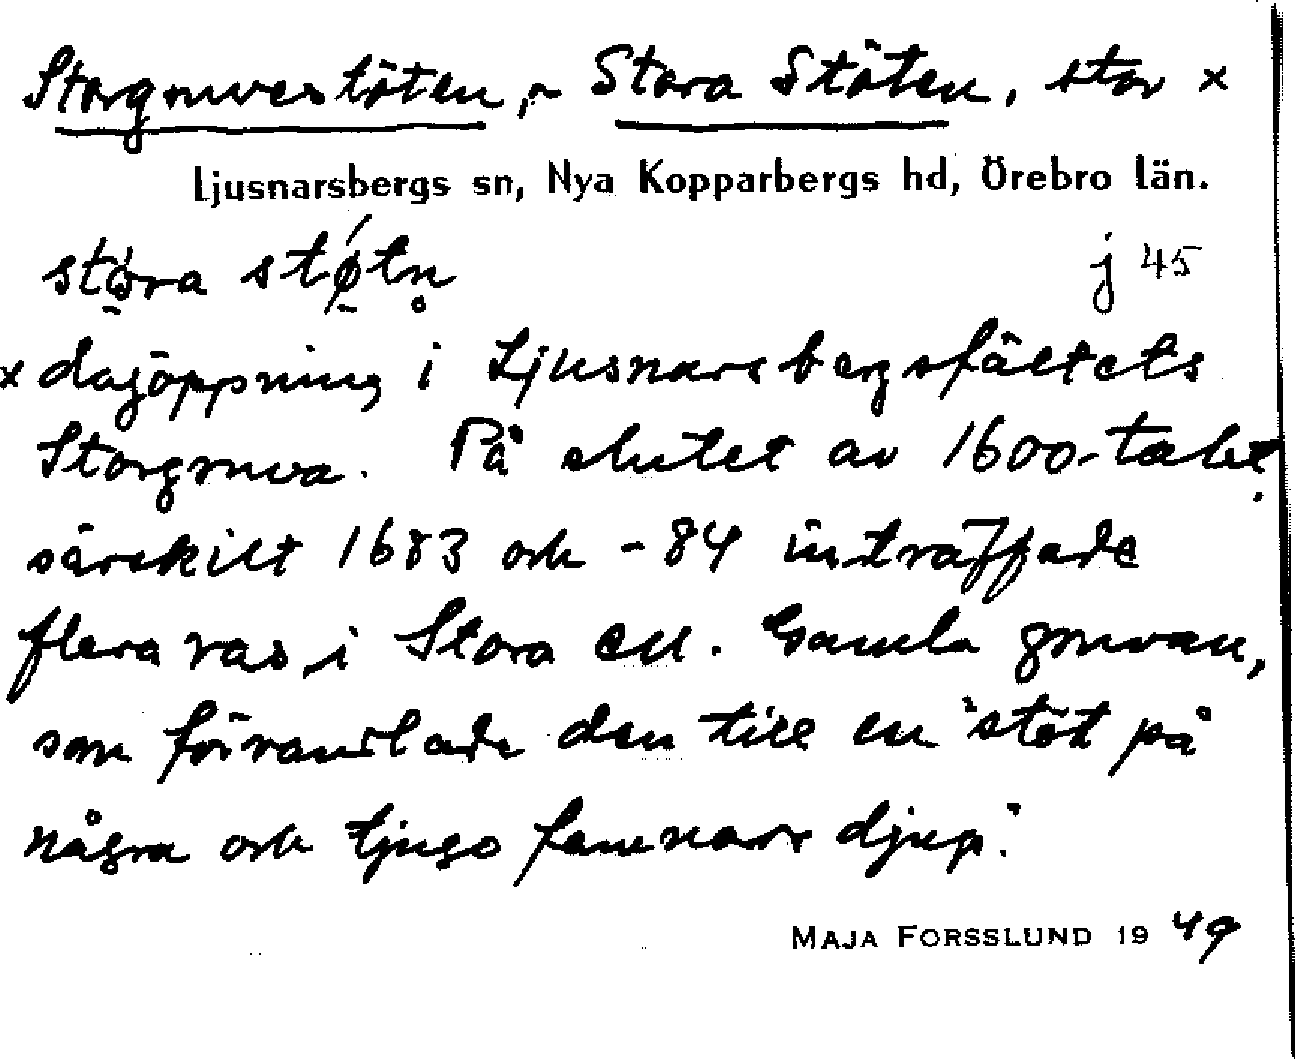 Storgruvestöten, ~ Stora Stöten, stor x
Ljusnarsbergs sn, Nya Kopparbergs hd, Örebro län.
stø̀tn̥
j 45
x dagöppning i Ljusnarsbergsfältets
Storgruva. På slutet av 1600-talet,
särskilt 1683 och -84 inträffade
flera ras i Stora ell. Gamla gruvan,
som förvandlade den till en "stöt på
några och tjugo famnars djup".
MAJA FORSSLUND 1949